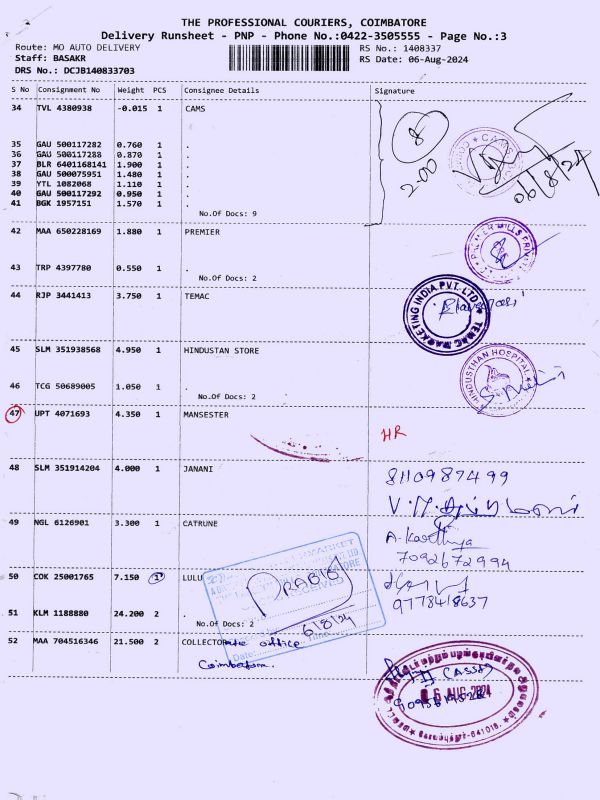 THE PROFESSIONAL COURIERS, COIMBATORE
Delivery Runsheet - PNP - Phone No.:0422-3505555 - Page No.:3
Route: MO AUTO DELIVERY RS No.: 1408337
Staff: BASAKR RS Date: 06-Aug-2024
DRS No.: DCJB140833703
S No Consignment No Weight PCS Consignee Details Signature
34 TVL 4380938 -0.015 1 CAMS
8
2-00
06/8/24
35 GAU 500117282 0.760 1 .
36 GAU 500117288 0.870 1 .
37 BLR 6401168141 1.900 1 .
38 GAU 500075951 1.480 1 .
39 YTL 1082068 1.110 1 .
40 GAU 500117292 0.950 1 .
41 BGK 1957151 1.570 1 .
No.Of Docs: 9
42 MAA 650228169 1.880 1 PREMIER
43 TRP 4397780 0.550 1 .
No.Of Docs: 2
44 RJP 3441413 3.750 1 TEMAC
TEMAC MARKETING INDIA PVT. LTD.
45 SLM 351938568 4.950 1 HINDUSTAN STORE
HINDUSTHAN HOSPITAL
46 TCG 50689005 1.050 1 .
No.Of Docs: 2
47 UPT 4071693 4.350 1 MANSESTER
HR
48 SLM 351914204 4.000 1 JANANI
8110987499
49 NGL 6126901 3.300 1 CATRUNE
A. Karthiya
7092672994
50 COK 25001765 7.150 1 LULU
9778418637
51 KLM 1188880 24.200 2 .
No.Of Docs: 2
6/8/24
52 MAA 704516346 21.500 2 COLLECTORate office
Coimbatore.
06 AUG 2024